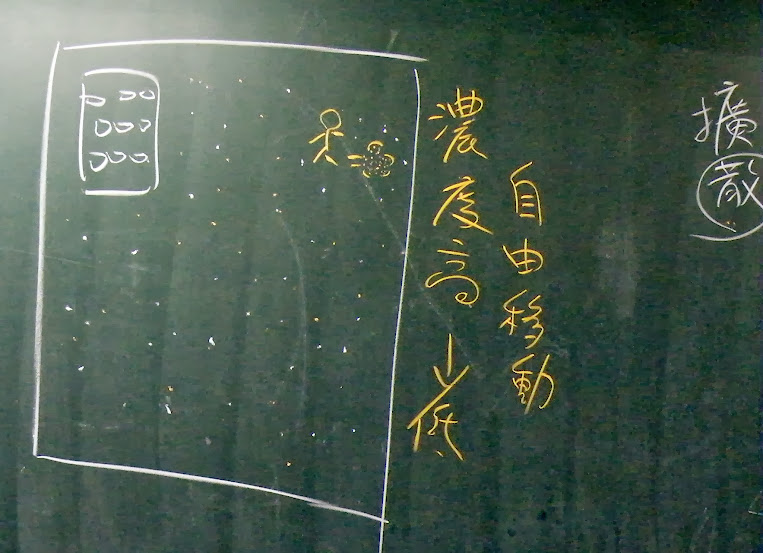 擴散
自由移動
濃度高→低